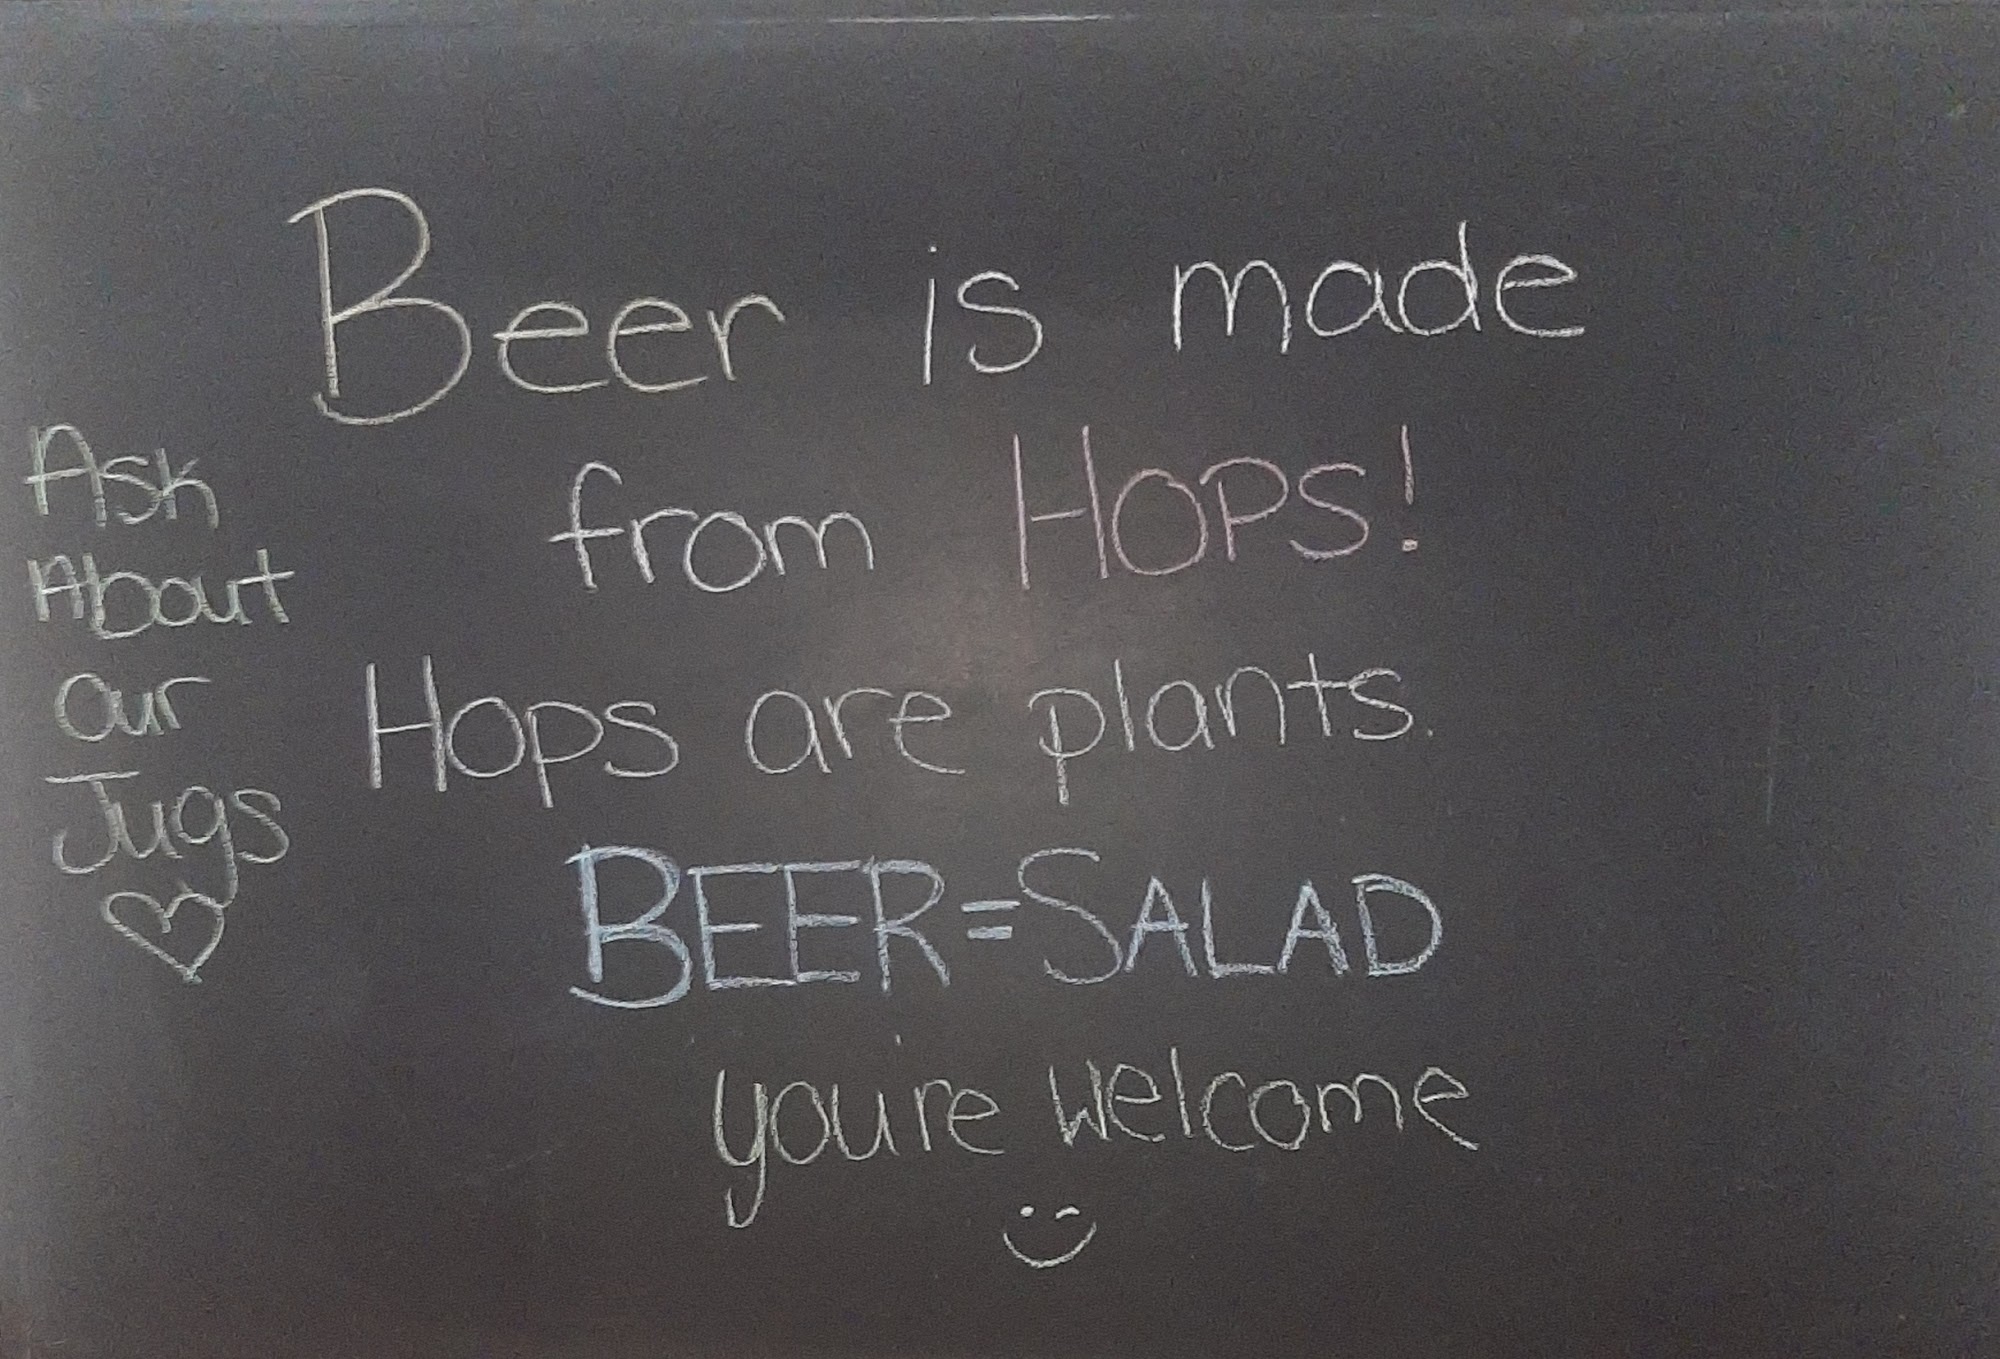 Beer is made
from HOPS!
Hops are plants.
BEER=SALAD
youre welcome
Ask
About
our
Jugs